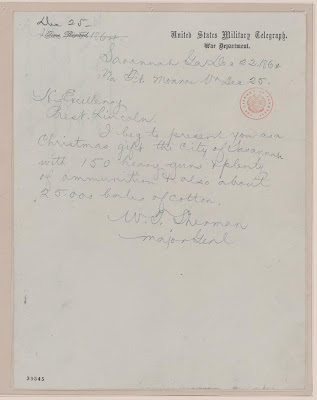 Dec 25
United States Military Telegraph.
War Department.
Savannah Ga Dec 22 186
Via Ft Monroe Va Dec 25.
His Excellency
Prest. Lincoln.
I beg to present you as a
Christmas gift the City of Savannah
with 150 heavy guns & plenty
of ammunition & also about
25.000 bales of cotton.
W. T. Sherman
Major Genl